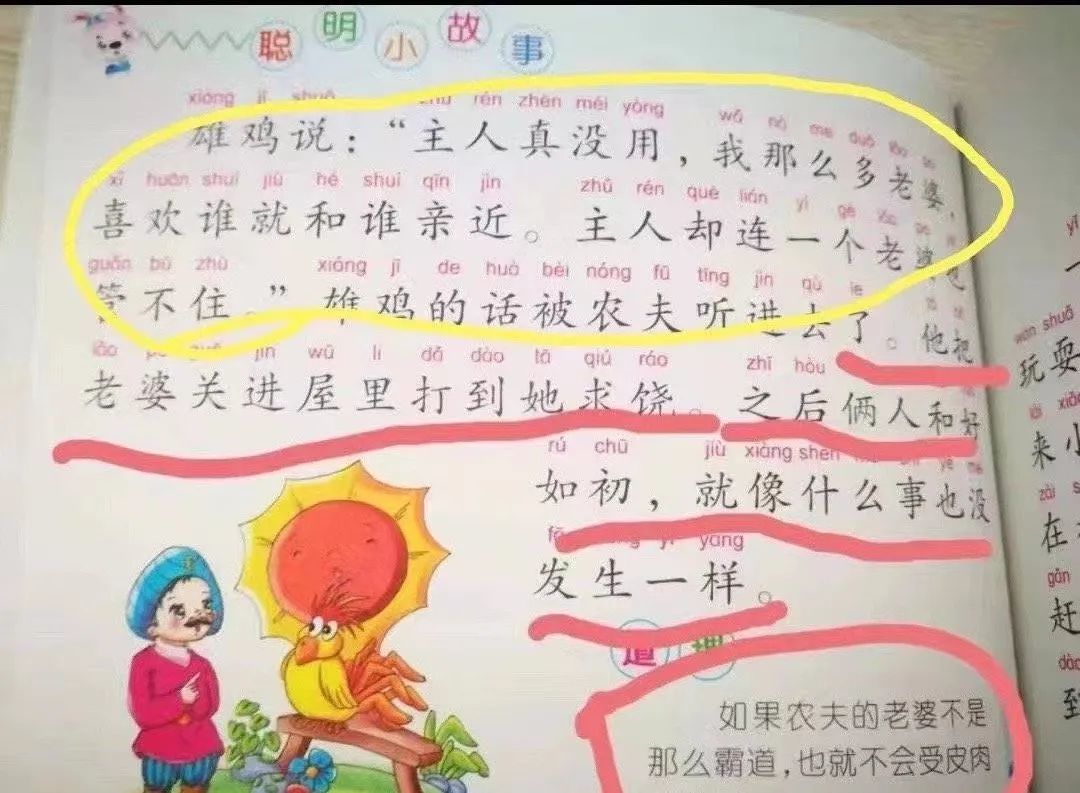 聪明小故事
xióng jī shuō zhǔ rén zhēn méi yòng wǒ nà me duō lǎo po
雄鸡说：“主人真没用，我那么多老婆，
xǐ huān shuí jiù hé shuí qīn jìn zhǔ rén què lián yí gè lǎo pó
喜欢谁就和谁亲近。主人却连一个老婆也
guǎn bú zhù xióng jī de huà bèi nóng fū tīng jìn qù le
管不住。”雄鸡的话被农夫听进去了。他把
lǎo pó guān jìn wū li dǎ dào tā qiú ráo zhī hòu
老婆关进屋里打到她求饶。之后俩人和好
rú chū jiù xiàng shén me shì yě méi
如初，就像什么事也没
fā shēng yí yàng
发生一样。
道理
如果农夫的老婆不是
那么霸道，也就不会受皮肉
yī
一
wán shuǎ
玩耍
lái xiǎo
来小
zài
在
gǎn
赶
dào
到